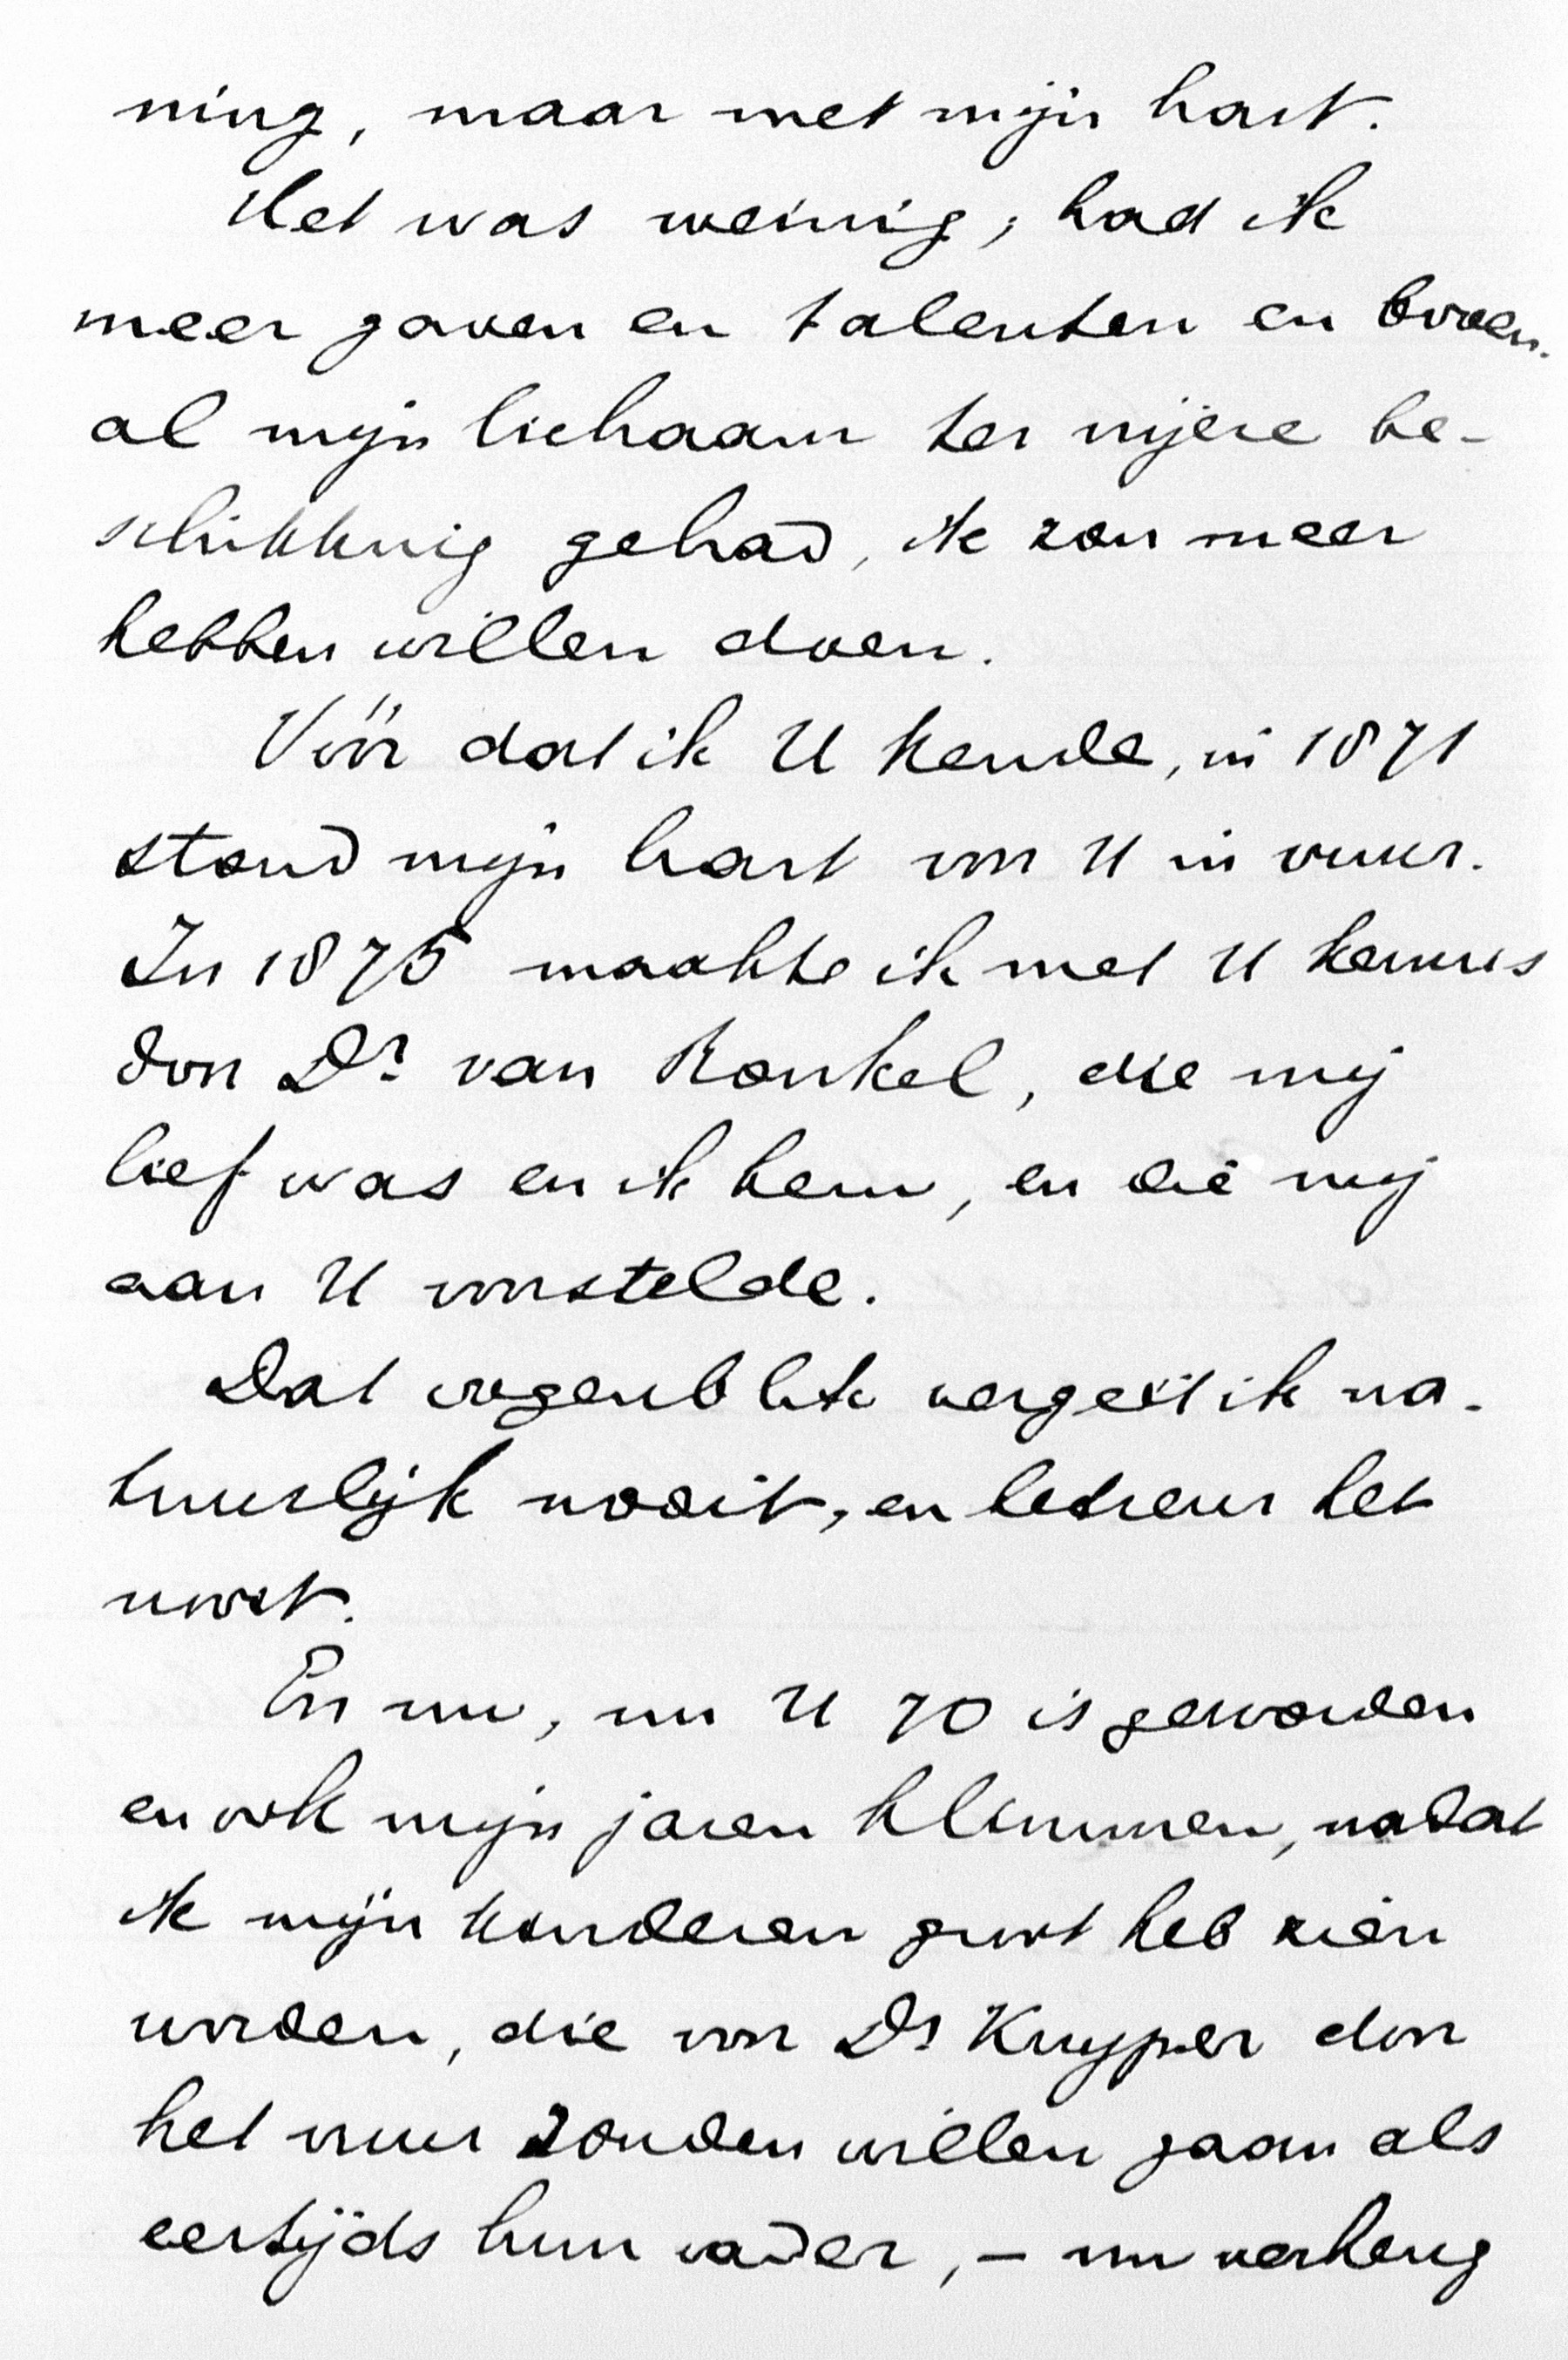 ning, maar met mijn hart.
Het was weinig; had ik
meer gaven en talenten en boven
al mijn lichaam ter mijner be-
schikking gehad, ik zou meer
hebben willen doen.
Vóór dat ik U kende, in 1871
stond mijn hart voor U in vuur.
In 1875 maakte ik met U kennis
door Dr van Ronkel, die mij
lief was en ik hem, en die mij
aan U voorstelde.
Dat oogenblik vergeet ik na-
tuurlijk nooit, en betreur het
nooit.
En nu, nu U 70 is geworden
en ook mijn jaren klimmen, nadat
ik mijn kinderen groot heb zien
worden, die voor Dr Kuyper door
het vuur zouden willen gaan als
eertijds hun vader, – nu verheug